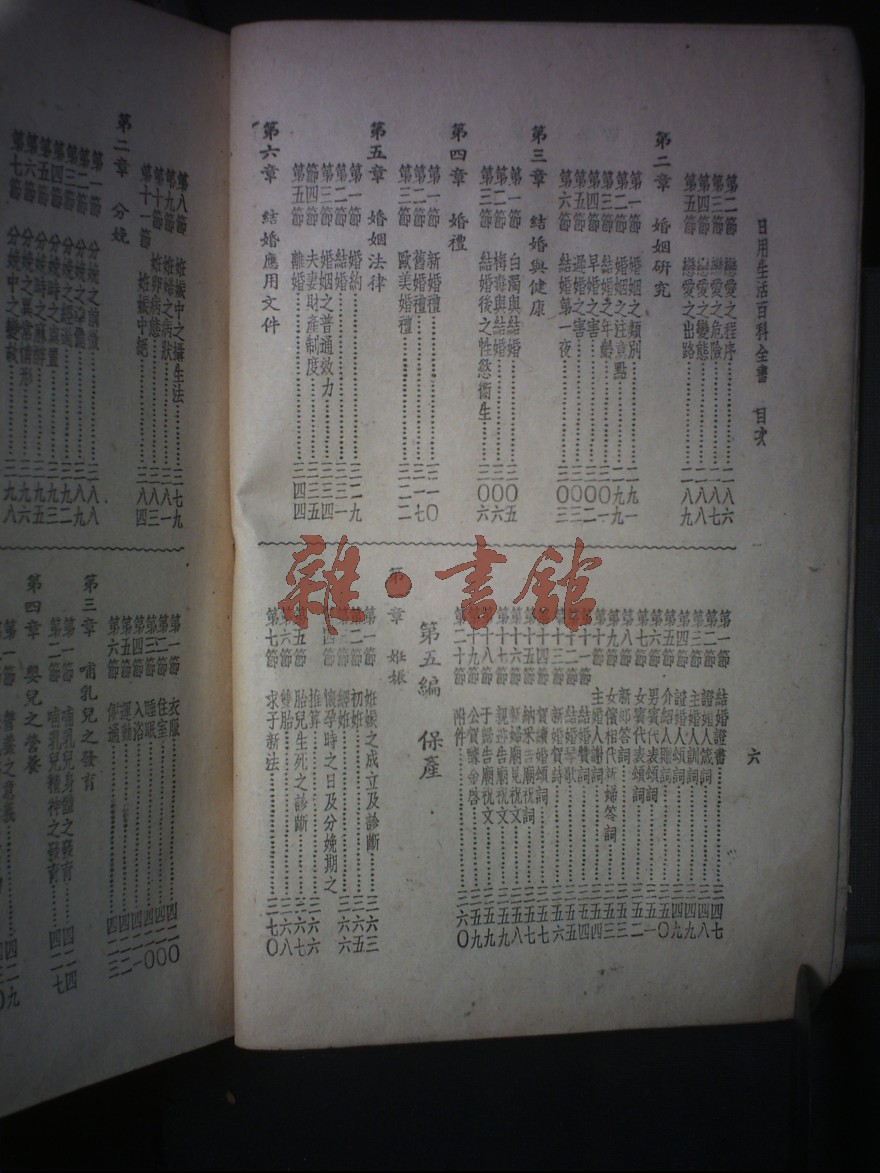 日用生活百科全書 目次
六
第二節 戀愛之程序……一八六
第三節 戀愛之危險……一八七
第四節 戀愛之變態……一八八
第五節 戀愛之出路……一八九
第二章 婚姻研究
第一節 婚姻之類別……一九一
第二節 婚姻之注意點……一九九
第三節 結婚之年齡……二〇一
第四節 早婚之害……二〇二
第五節 遲婚之害……二〇三
第六節 結婚第一夜……二〇三
第三章 結婚與健康
第一節 白濁與結婚……二〇五
第二節 梅毒與結婚……二〇六
第三節 結婚後之性慾衞生……二〇六
第四章 婚禮
第一節 新婚禮……二一〇
第二節 舊婚禮……二一七
第三節 歐美婚禮……二二二
第五章 婚姻法律
第一節 婚約……二二九
第二節 結婚……二三一
第三節 婚姻之普通效力……二三四
第四節 夫妻財產制度……二三五
第五節 離婚……二四四
第六章 結婚應用文件
第一節 結婚證書……二四七
第二節 證婚人箴詞……二四八
第三節 主婚人訓詞……二四九
第四節 證婚人頌詞……二四九
第五節 介紹人贈詞……二五〇
第六節 男賓代表頌詞……二五一
第七節 女賓代表頌詞……二五二
第八節 新郎答詞……二五二
第九節 女儐相代新婦答詞……二五三
第十節 主婚人謝詞……二五四
第十一節 結婚贊詞……二五四
第十二節 結婚琴歌……二五五
第十三節 新婚賀詩……二五六
第十四節 賀婚頌詞……二五七
第十五節 納采告廟祝詞……二五七
第十六節 新婦廟見祝文……二五八
第十七節 親迎告廟祝文……二五九
第十八節 于歸告廟祝文……二五九
第十九節 公賀醵金啓……二五九
第二十節 附件……二六〇
第五編 保產
第一章 妊娠
第一節 妊娠之成立及診斷……二六三
第二節 初妊……二六五
第三節 經妊……二六六
第四節 懷孕時之日及分娩期之
推算……二六六
第五節 胎兒生死之診斷……二六七
第六節 雙胎……二六八
第七節 求子新法……二七〇
第八節 妊娠中之攝生法……二七九
第九節 妊婦之病狀……二八一
第十節 妊卵病態……二八三
第十一節 妊娠中絕……二八四
第二章 分娩
第一節 分娩之前徵……二八八
第七節 分娩中之變救……二九八
第一節 衣服……四二〇
第二節 住室……四二〇
第三節 睡眠……四二〇
第四節 入浴……四二一
第五節 運動……四二二
第六節 便通……四二三
第三章 哺乳兒之發育
第一節 哺乳兒身體之發育……四二四
第二節 哺乳兒精神之發育……四二七
第四章 嬰兒之營養
第一節 營養之意義……四二九
雜·書館